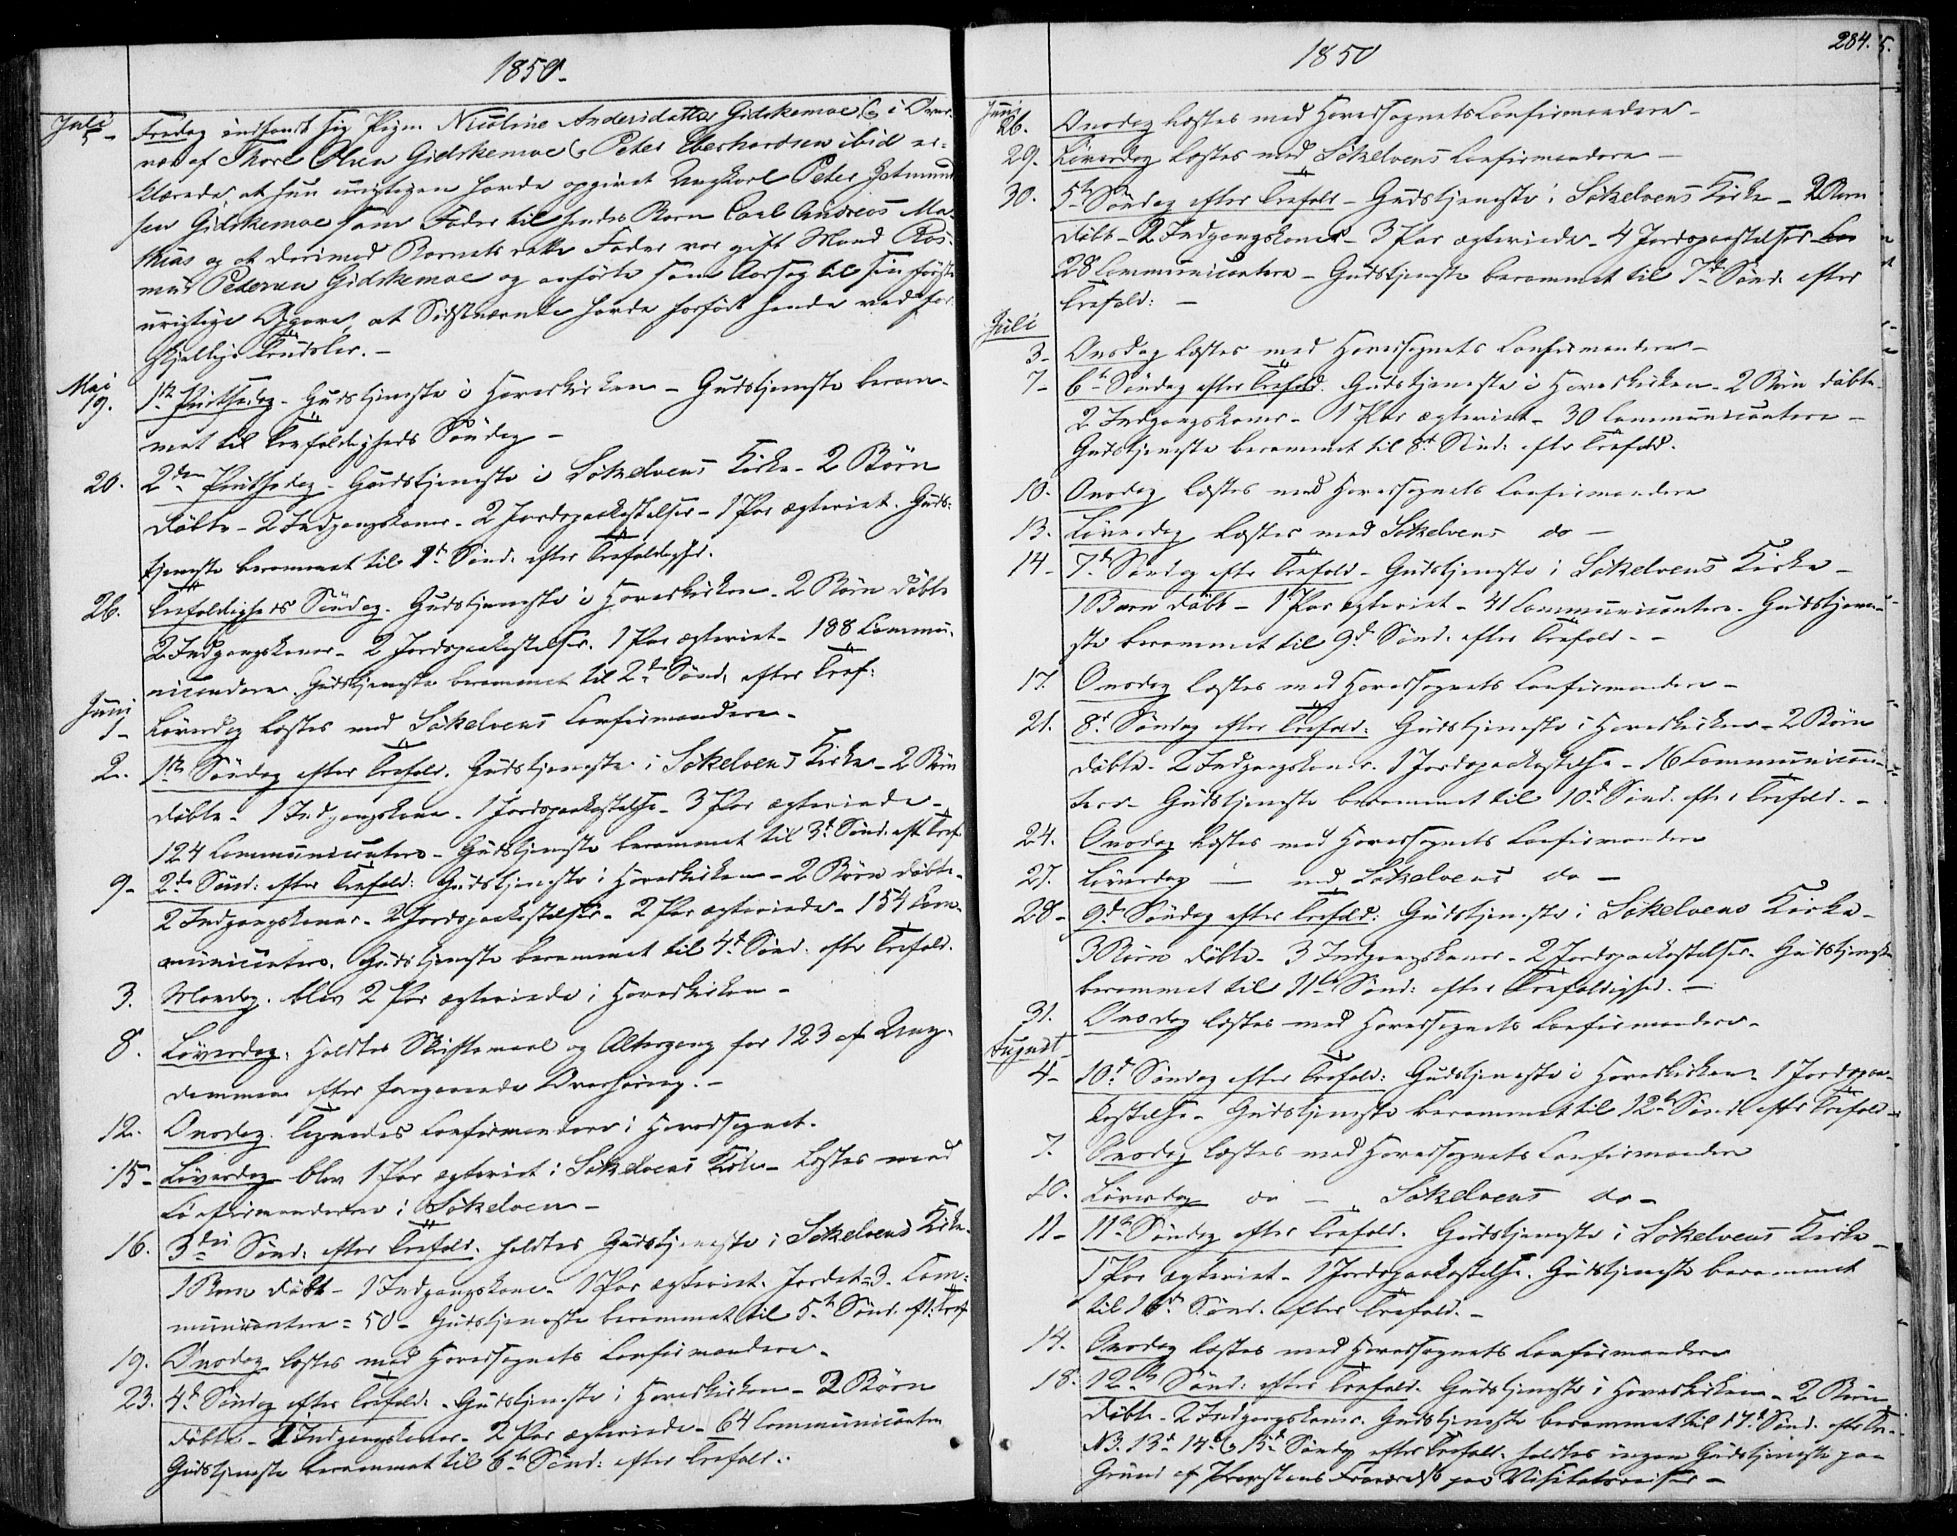 1850.
Juli
5 - Fredag indfandt sig Pigen Nicoline Andersdatter Gidskemoe & i Over-
vær af Thore Olsen Gidskemoe & Peter Eberhardsen ibid er-
klærede, at hun urigtigen havde opgivet Ungkarl Peter Zetmund-
sen Gidskemoe som Fader til hendes Barn Carl Andreas Ma-
thias og at derimod Barnets rette Fader var gift Mand Ras-
mus Pedersen Gidskemoe og anførte som Aarsag til sin første
urigtige Opgave, at Sidstnævnte havde forført hende ved for-
skjellige Trudsler. -
Mai
19. 1ste Pintsedag - Gudstjeneste i Hovedkirken - Gudstjeneste beram-
met til Trefoldigheds Søndag -
20. 2den Pintsedag - Gudstjeneste i Søkelvens Kirke - 2 Børn
døbte - 2 Indgangskoner - 2 Jordpaakastelser - 1 Par ægteviet. Guds-
tjeneste berammet til 1ste Sønd. efter Trefoldighed.
26. Trefoldigheds Søndag. Gudstjeneste i Hovedkirken - 2 Børn døbte
2 Indgangskoner - 2 Jordpaakastelser. 1 Par ægteviet - 188 Commu-
nicanter. Gudstjeneste berammet til 2den Sønd. efter Tref:
Juni
1 - Løverdag læstes med Søkelvens Confirmander -
2. 1ste Søndag efter Trefold. Gudstjeneste i Søkelvens Kirke - 2 Børn
døbte - 1 Indgangskone - 1 Jordpaakastelse - 3 Par ægteviede -
124 Communicanter - Gudstjeneste berammet til 3die Sønd. eft. Tref.
9 - 2den Sønd: efter Trefold: Gudstjeneste i Hovedkirken - 2 Børn døbte -
2 Indgangskoner - 2 Jordpaakastelser - 2 Par ægteviede - 154 Com-
municanter. Gudstjeneste berammet til 4de Sønd. efter Trefold.
3. Mandag. blev 2 Par ægteviede i Hovedkirken -
8. Løverdag. Holdtes Skriftemaal og Altergang for 123 af Ung-
dommen efter foregaaende Overhøring. -
12. Onsdag. tegnedes Confirmander i Hovedsognet.
15 - Løverdag blev 1 Par ægteviet i Søkelvens Kirke - læstes med
Confirmanderne i Søkelven -
16. 3die Sønd: efter Trefold. holdtes Gudstjeneste i Søkelvens Kirke.
1 Barn døbt - 1 Indgangskone - 1 Par ægteviet. Jordet = 3. Com-
municantere = 50 - Gudstjeneste berammet til 5te Sønd. eft. Tref
19. Onsdag læstes med Hovedsognets Confirmander -
23. 4de Søndag efter Trefold: - Gudstjeneste i Hovedkirken - 2 Børn
døbte - 2 Indgangskoner - 2 Par ægteviede - 64 Communicanter
Gudstjeneste berammet til 6te Sønd: efter Trefold..
1850
284.
Juni
26. Onsdag læstes med Hovedsognets Confirmander -
29. Løverdag læstes med Søkelvens Confirmander -
30. 5te Søndag efter Trefold - Gudstjeneste i Søkelvens Kirke - 2 Børn
døbt - 2 Indgangskoner - 3 Par ægteviede - 4 Jordpaakastelser
28 Communicantere - Gudstjeneste berammet til 7de Sønd. efter
Trefold: -
Juli
3 - Onsdag læstes med Hovedsognets Confirmander -
7 - 6te Søndag efter Trefold. Gudstjeneste i Hovedkirken - 2 Børn døbte -
2 Indgangskoner - 1 Par ægteviet - 30 Communicantere -
Gudstjeneste berammet til 8de Sønd. efter Trefold.
10. Onsdag læstes med Hovedsognets Confirmander
13. Løverdag læstes med Søkelvens do -
14 - 7de Søndag efter Trefold - Gudstjeneste i Søkelvens Kirke -
1 Barn døbt - 1 Par ægteviet - 41 Communicantere - Gudstjene-
ste berammet til 9de Sønd. efter Trefold. -
17. Onsdag læstes med Hovedsognets Confirmander -
21. 8de Søndag efter Trefold: Gudstjeneste i Hovedkirken - 2 Børn
døbte - 2 Indgangskoner. 1 Jordpaakastelse - 16 Communican-
tere - Gudstjeneste berammet til 10de Sønd. efter Trefold. -
24. Onsdag læstes med Hovedsognets Confirmander
27. Løverdag - med Søkelvens do -
28 - 9de Søndag efter Trefold: Gudstjeneste i Søkelvens Kirke -
3 Børn døbte - 3 Indgangskoner - 2 Jordpaakastelser - Gudstjeneste
berammet til 11te Sønd: efter Trefoldighed. -
31. Onsdag læstes med Hovedsognets Confirmander -
August
4 - 10de Søndag efter Trefold: Gudstjeneste i Hovedkirken - 1 Jordpaa-
kastelse - Gudstjeneste berammet til 12te Sønd. efter Trefold -
7. Onsdag læstes med Hovedsognets Confirmander
10. Løverdag do - Søkelvens do -
11 - 11te Søndag efter Trefold. Gudstjeneste i Søkelvens Kirke -
1 Par ægteviet - 1 Jordpaakastelse. Gudstjeneste berammet
til 16de Sønd. efter Trefold. -
14. Onsdag læstes med Hovedsognets Confirmander
18. 12te Sønd: efter Trefold. Gudstjeneste i Hovedkirken - 2 Børn
døbte - 2 Indgangskoner. Gudstjeneste berammet til 17de Sønd. efter Tr.
NB. 13de 14de & 15de Søndag efter Trefold. holdtes ingen Gudstjeneste paa
Grund af Provstens Fraværelse paa Visitatsreiser -